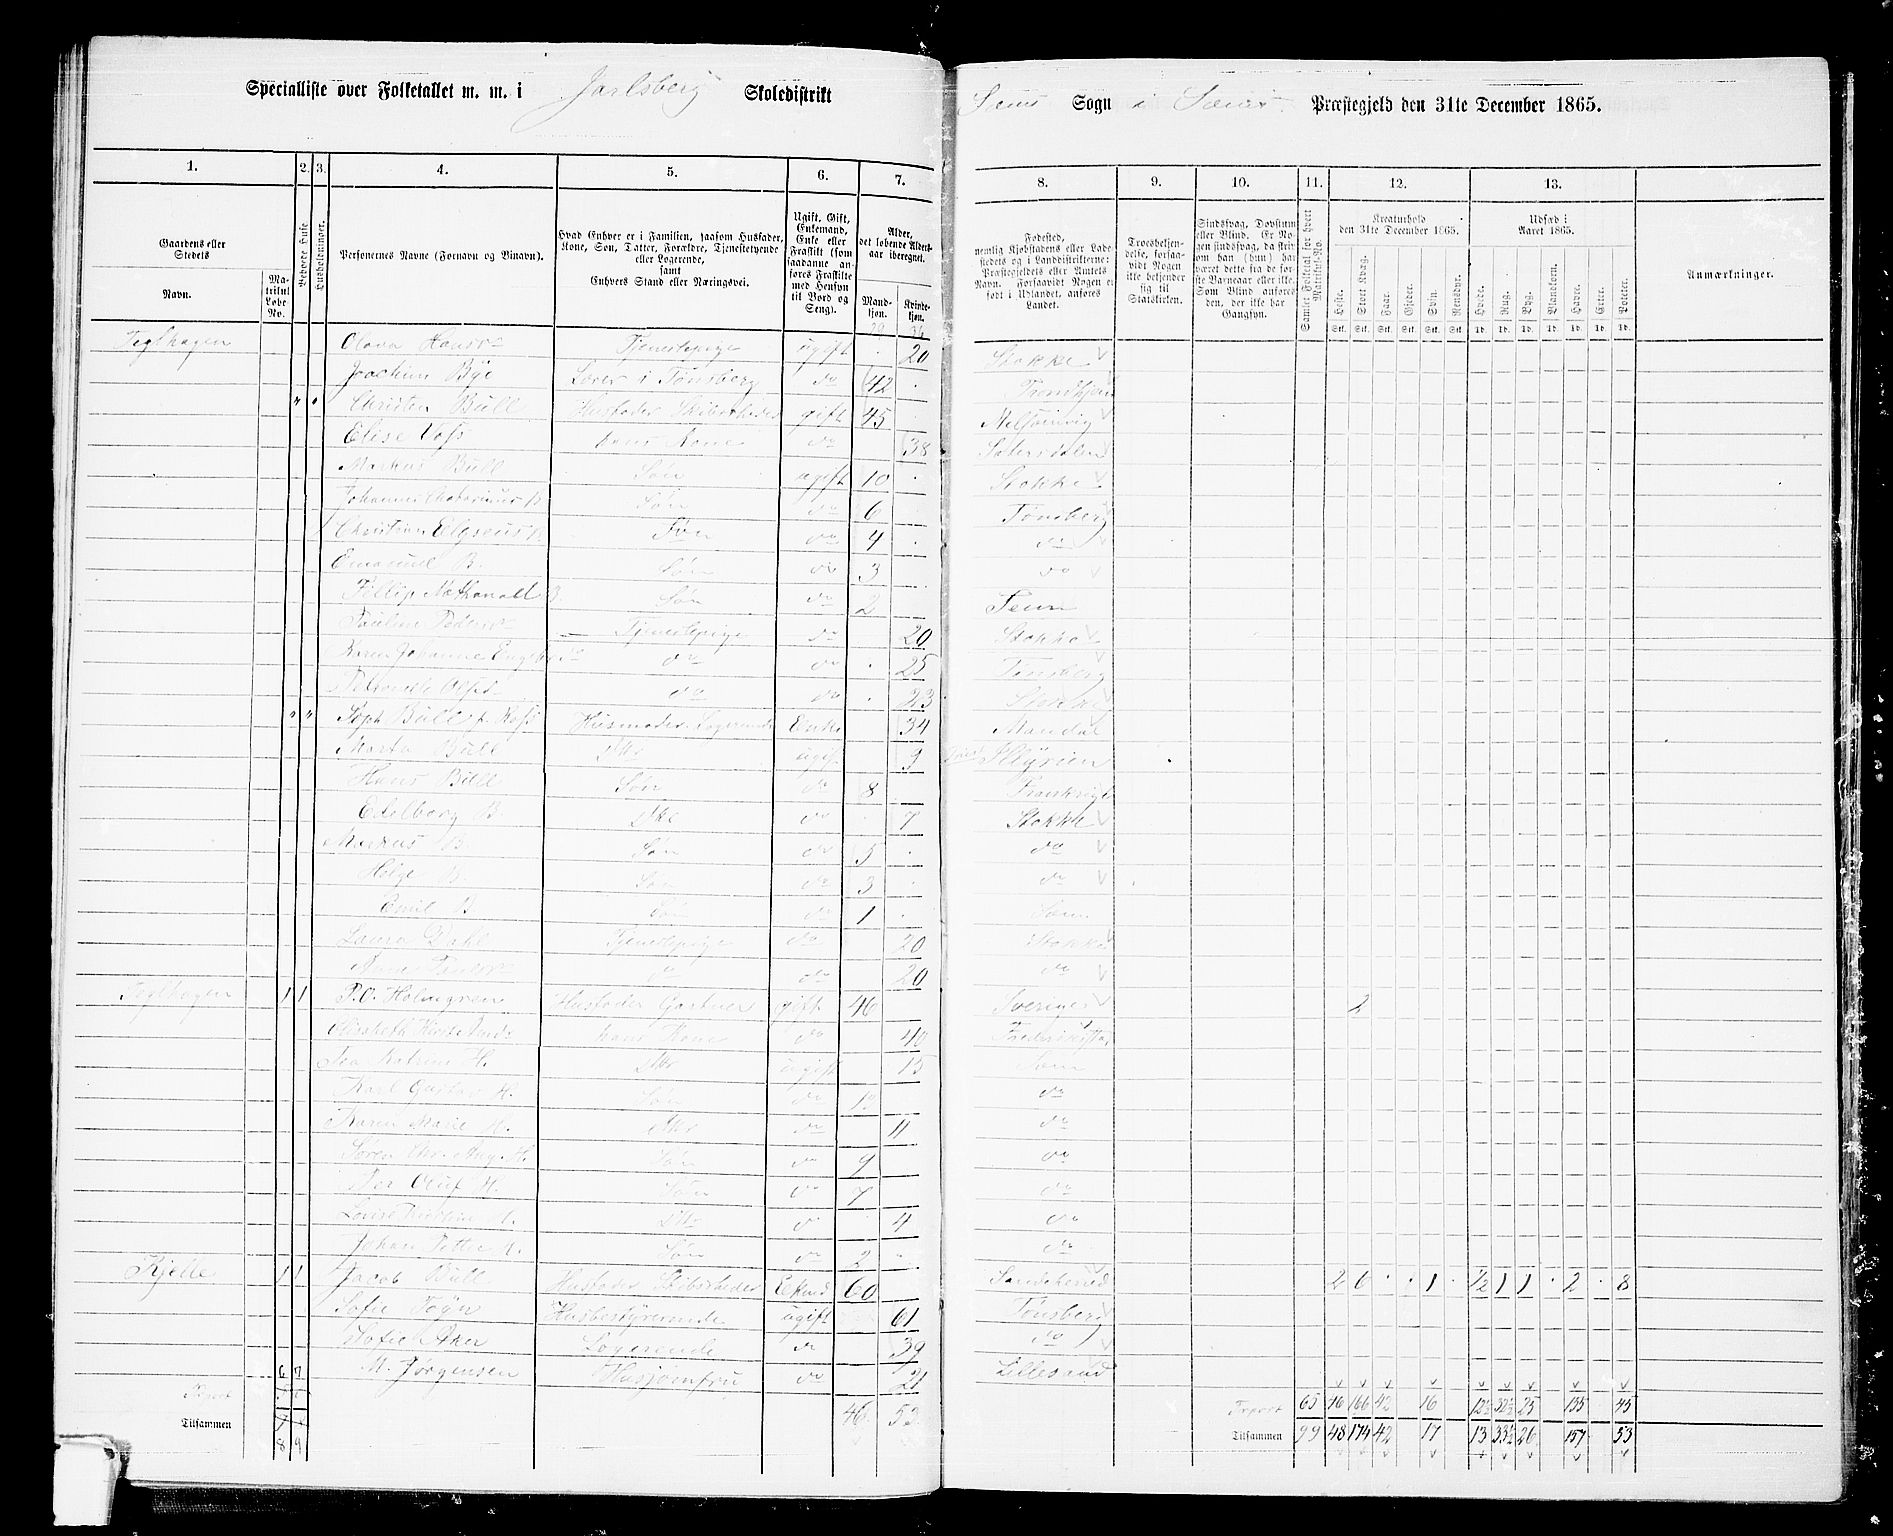 Specialliste over Folketallet m. m. i Jarlsberg Skoledistrikt Sems Sogn i Sems Præstegjeld den 31te December 1865.
1. 2. 3. 4. 5. 6. 7. 8. 9. 10. 11. 12. 13.
Gaardens eller Stedets Navn. Matrikul Løbe No. Beboede Huse Husholdninger. Personernes Navne (Fornavn og Binavn). Hvad Enhver er i Familien, saasom Husfader, Kone, Søn, Datter, Forældre, Tjenestetyende eller Logerende, samt Enhvers Stand eller Næringsvei. Ugift, Gift, Enkemand, Enke eller Fraskilt (som saadanne anføres Fraskilte med Hensyn til Bord og Seng). Alder, det løbende Aldersaar iberegnet. Mandkjøn. Kvindekjøn. Fødested, nemlig Kjøbstadens eller Ladestedets og i Landdistrikterne: Præstegjeldets eller Amtets Navn. Forsaavidt Nogen er født i Udlandet, anføres Landet. Troesbekjendelse, forsaavidt Nogen ikke bekjender sig til Statskirken. Sindssvag, Døvstum eller Blind. Er Nogen sindssvag, da skrives om han (hun) har været dette fra de første Barneaar eller ikke. Som Blind anføres den, der ikke har Gangsyn. Samlet Folketal for hvert Matrikul-No. Kreaturhold den 31te December 1865. Heste. Stort Kvæg. Faar. Gjeder. Svin. Rensdyr. Udsæd i Aaret 1865. Hvede. Rug. Byg. Blandkorn. Havre. Erter. Poteter. Anmærkninger.
29 36
Teglhagen Olava Hansd Tjenestepige ugift 20 Stokke
Joachim Bye Lærer i Tønsberg do 42 Trondhjem
Christen Bull Husfader Skibsrheder gift 45 Melsomvig
Elise Voss hans Kone do 38 Sætersdalen
Markus Bull Søn ugift 10 Stokke
Johannes B Søn do 6 Tønsberg
Christian Elyseus B Søn do 4 do
Emanuel B. Søn do 3 do
Fillip Nathanael B. Søn do 2 Sem
Pauline Peders Tjenestepige do 20 Stokke
Karen Johanne do do 25 Tønsberg
Petronelle Olsd do do 23 Stokke
Soph Bull f. Husmoder Logerende Enke 34 Mandal
Marta Bull Dtr ugift 9 Styrien
Hans Bull Søn do 8 Frankrig
Edelborg B. Dtr do 7 Stokke
Markus B. Søn do 5 do
Helge B. Søn do 3 do
Emil B Søn do 1 Sem
Laura Dahl Tjenestepige do 20 Stokke
do do 20 do
Teglhagen 1 1 P.O. Holmgren Husfader Gartner gift 46 Sverige 2
Elisabeth hans Kone do 40 Fredrikstad
Katrine H. Dtr ugift 15 Sem
Karl Gustav H. Søn do 12 do
Karen Marie H. Dtr do 11 do
Søren Chr. Aug. H. Søn do 9 do
Per Oluf H. Søn do 7 do
Lovise H. Dtr do 4 do
Johan Petter H. Søn do 2 do
Kjelle 1 1 Jacob Bull Husfader Skibsrheder Ekmd 60 Sandeherred 2 6 1 ½ 1 1 2 8
Sofie Føyn Husbestyrerinde ugift 61 Tønsberg
Sofie Aker Logerende do 39 do
M. Jørgensen Husjomfru do 21 Lillesand
6 7
Trsport 65 46 166 42 16 12½ 32½ 25 155 45
Tilsammen 8 9 46 53 Tilsammen 99 48 174 42 17 13 33½ 26 157 53